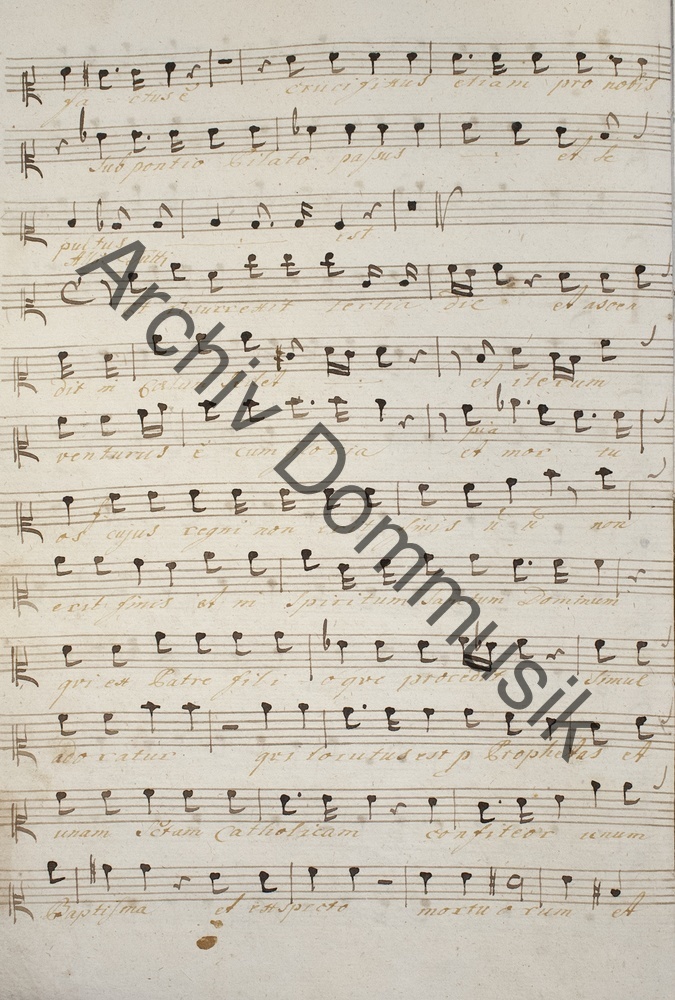 crucifixus etiam pro nobis
sub pontio Pilato passus et se
pultus est
tertia die et ascen
dit et iterum
venturus ē cum et mor tu
os cujus regni non finis n n non
erit finis et in Spiritum Dominum
qui ex Patre fili o que procedit Simul
ado ratur qui locutus est p Prophetas et
unam Sctam Catholicam confiteor unum
Baptisma et exspecto mortu o rum et
Archiv Dommusik